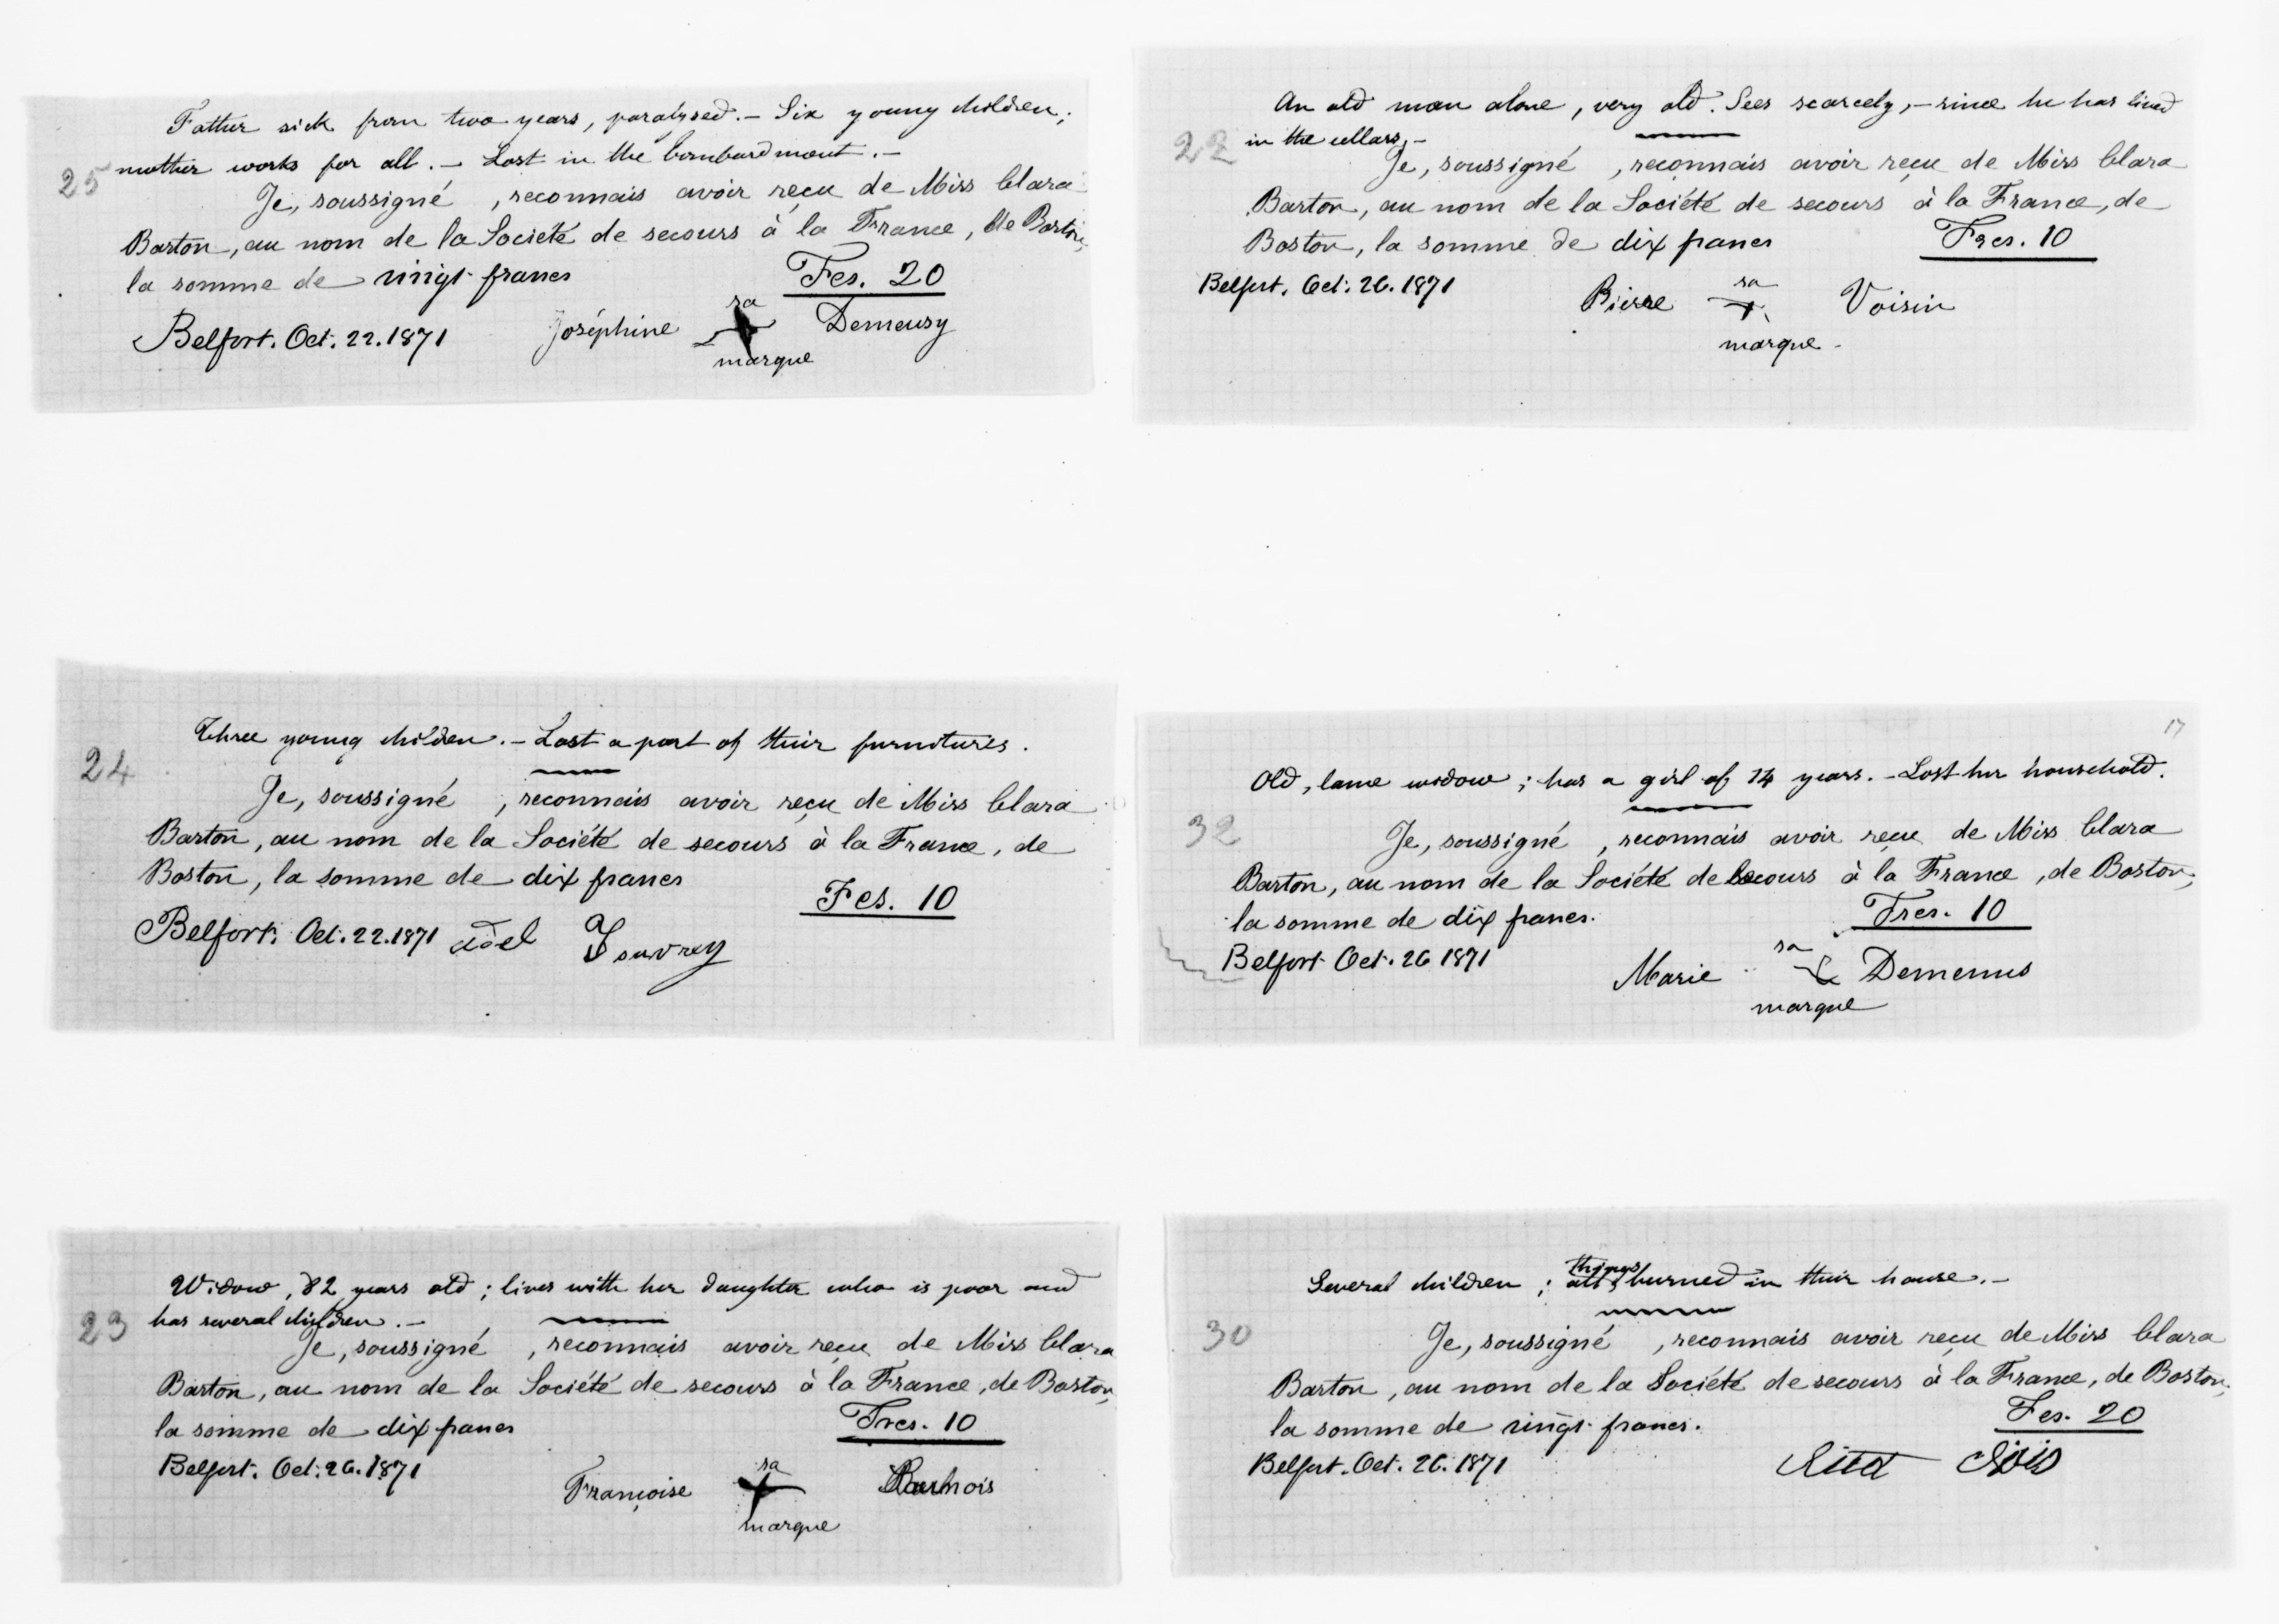 Father sick from two years, paralysed. — Six young children;
25 mother works for all. — Lost in the bombardment. —
Je, soussigné , reconnais avoir reçu de Miss Clara
Barton, au nom de la Societé de secours à la France, de Boston,
la somme de vingt francs
Fcs. 20
Belfort. Oct. 22. 1871
Joséphine sa Demeusy
marque
Three young children. — Lost a part of their furnitures.
24
Je, soussigné , reconnais avoir reçu de Miss Clara
Barton, au nom de la Société de secours à la France, de
Boston, la somme de dix francs
Fcs. 10
Belfort. Oct. 22. 1871
Widow, 82 years old; lives with her daughter who is poor and
23 has several children. —
Je, soussigné , reconnais avoir reçu de Miss Clara
Barton, au nom de la Société de secours à la France, de Boston,
la somme de dix francs
Frcs. 10
Belfort. Oct. 26. 1871
Françoise sa
marque
An old man alone, very old. Sees scarcely, — since he has lived
22 in the cellars, —
Je, soussigné , reconnais avoir reçu de Miss Clara
Barton, au nom de la Société de secours à la France, de
Boston, la somme de dix francs
Frcs. 10
Belfort. Oct. 26. 1871
Pierre sa Voisin
marque
17
Old, lame widow; has a girl of 14 years. — Lost her household.
32
Je, soussigné , reconnais avoir reçu de Miss Clara
Barton, au nom de la Société de secours à la France, de Boston,
la somme de dix francs.
Frcs. 10
Belfort Oct. 26 1871
Marie sa
marque
things
Several children; all burned in their house. —
30
Je, soussigné , reconnais avoir reçu de Miss Clara
Barton, au nom de la Société de secours à la France, de Boston,
la somme de vingt francs.
Fcs. 20
Belfort. Oct. 26. 1871